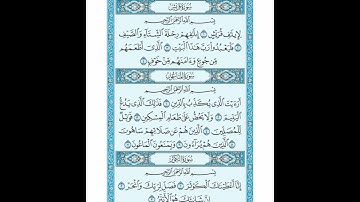 سورة قريش
بسم الله الرحمن الرحيم
لإيلاف قريش ۝ إيلافهم رحلة الشتاء والصيف
۝ فليعبدوا رب هذا البيت ۝ الذي أطعمهم
من جوع وءامنهم من خوف ۝
سورة الماعون
بسم الله الرحمن الرحيم
أرءيت الذي يكذب بالدين ۝ فذلك الذي يدع
اليتيم ۝ ولا يحض على طعام المسكين ۝ فويل
للمصلين ۝ الذين هم عن صلاتهم ساهون
۝ الذين هم يراءون ۝ ويمنعون الماعون ۝
سورة الكوثر
بسم الله الرحمن الرحيم
إنا أعطيناك الكوثر ۝ فصل لربك وانحر
۝ إن شانئك هو الأبتر ۝